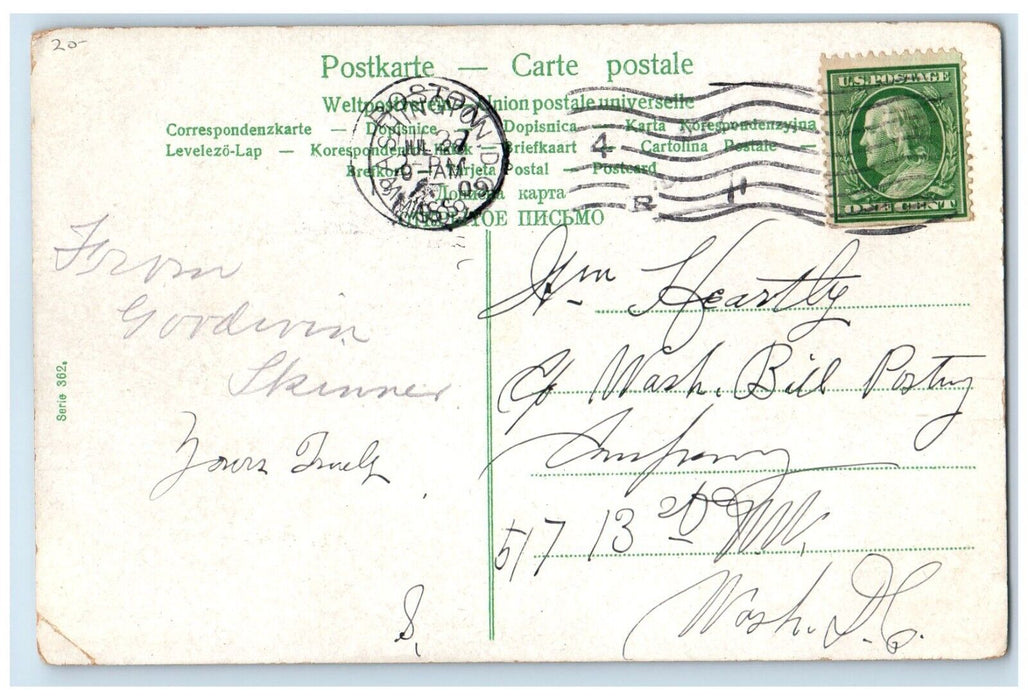 20-
Postkarte — Carte postale
Weltpostverein Union postale universelle
Correspondenzkarte — Dopisnice Dopisnica Karta Korespondenzyjna
Levelező-Lap — Briefkaart — Cartolina Postale —
Postal — Postcard
карта
ПИСЬМО
WASHINGTON, D.C.
JUL 27
9-AM
09
4
U.S. POSTAGE
ONE CENT
From
Goodwin
Skinner
Yours Truly
S.
Serie 362.
Wm Heartly
c/o Wash. Bill Posting
Company
517 13 NW.
Wash. D.C.